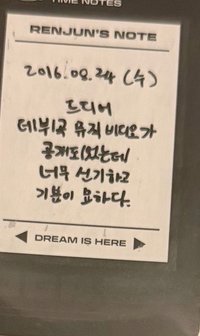 TIME NOTES
RENJUN'S NOTE
2016.08.24 (수)
드디어
데뷔곡 뮤직비디오가
공개되었는데
너무 신기하고
기분이 묘하다.
◀ DREAM IS HERE ▶